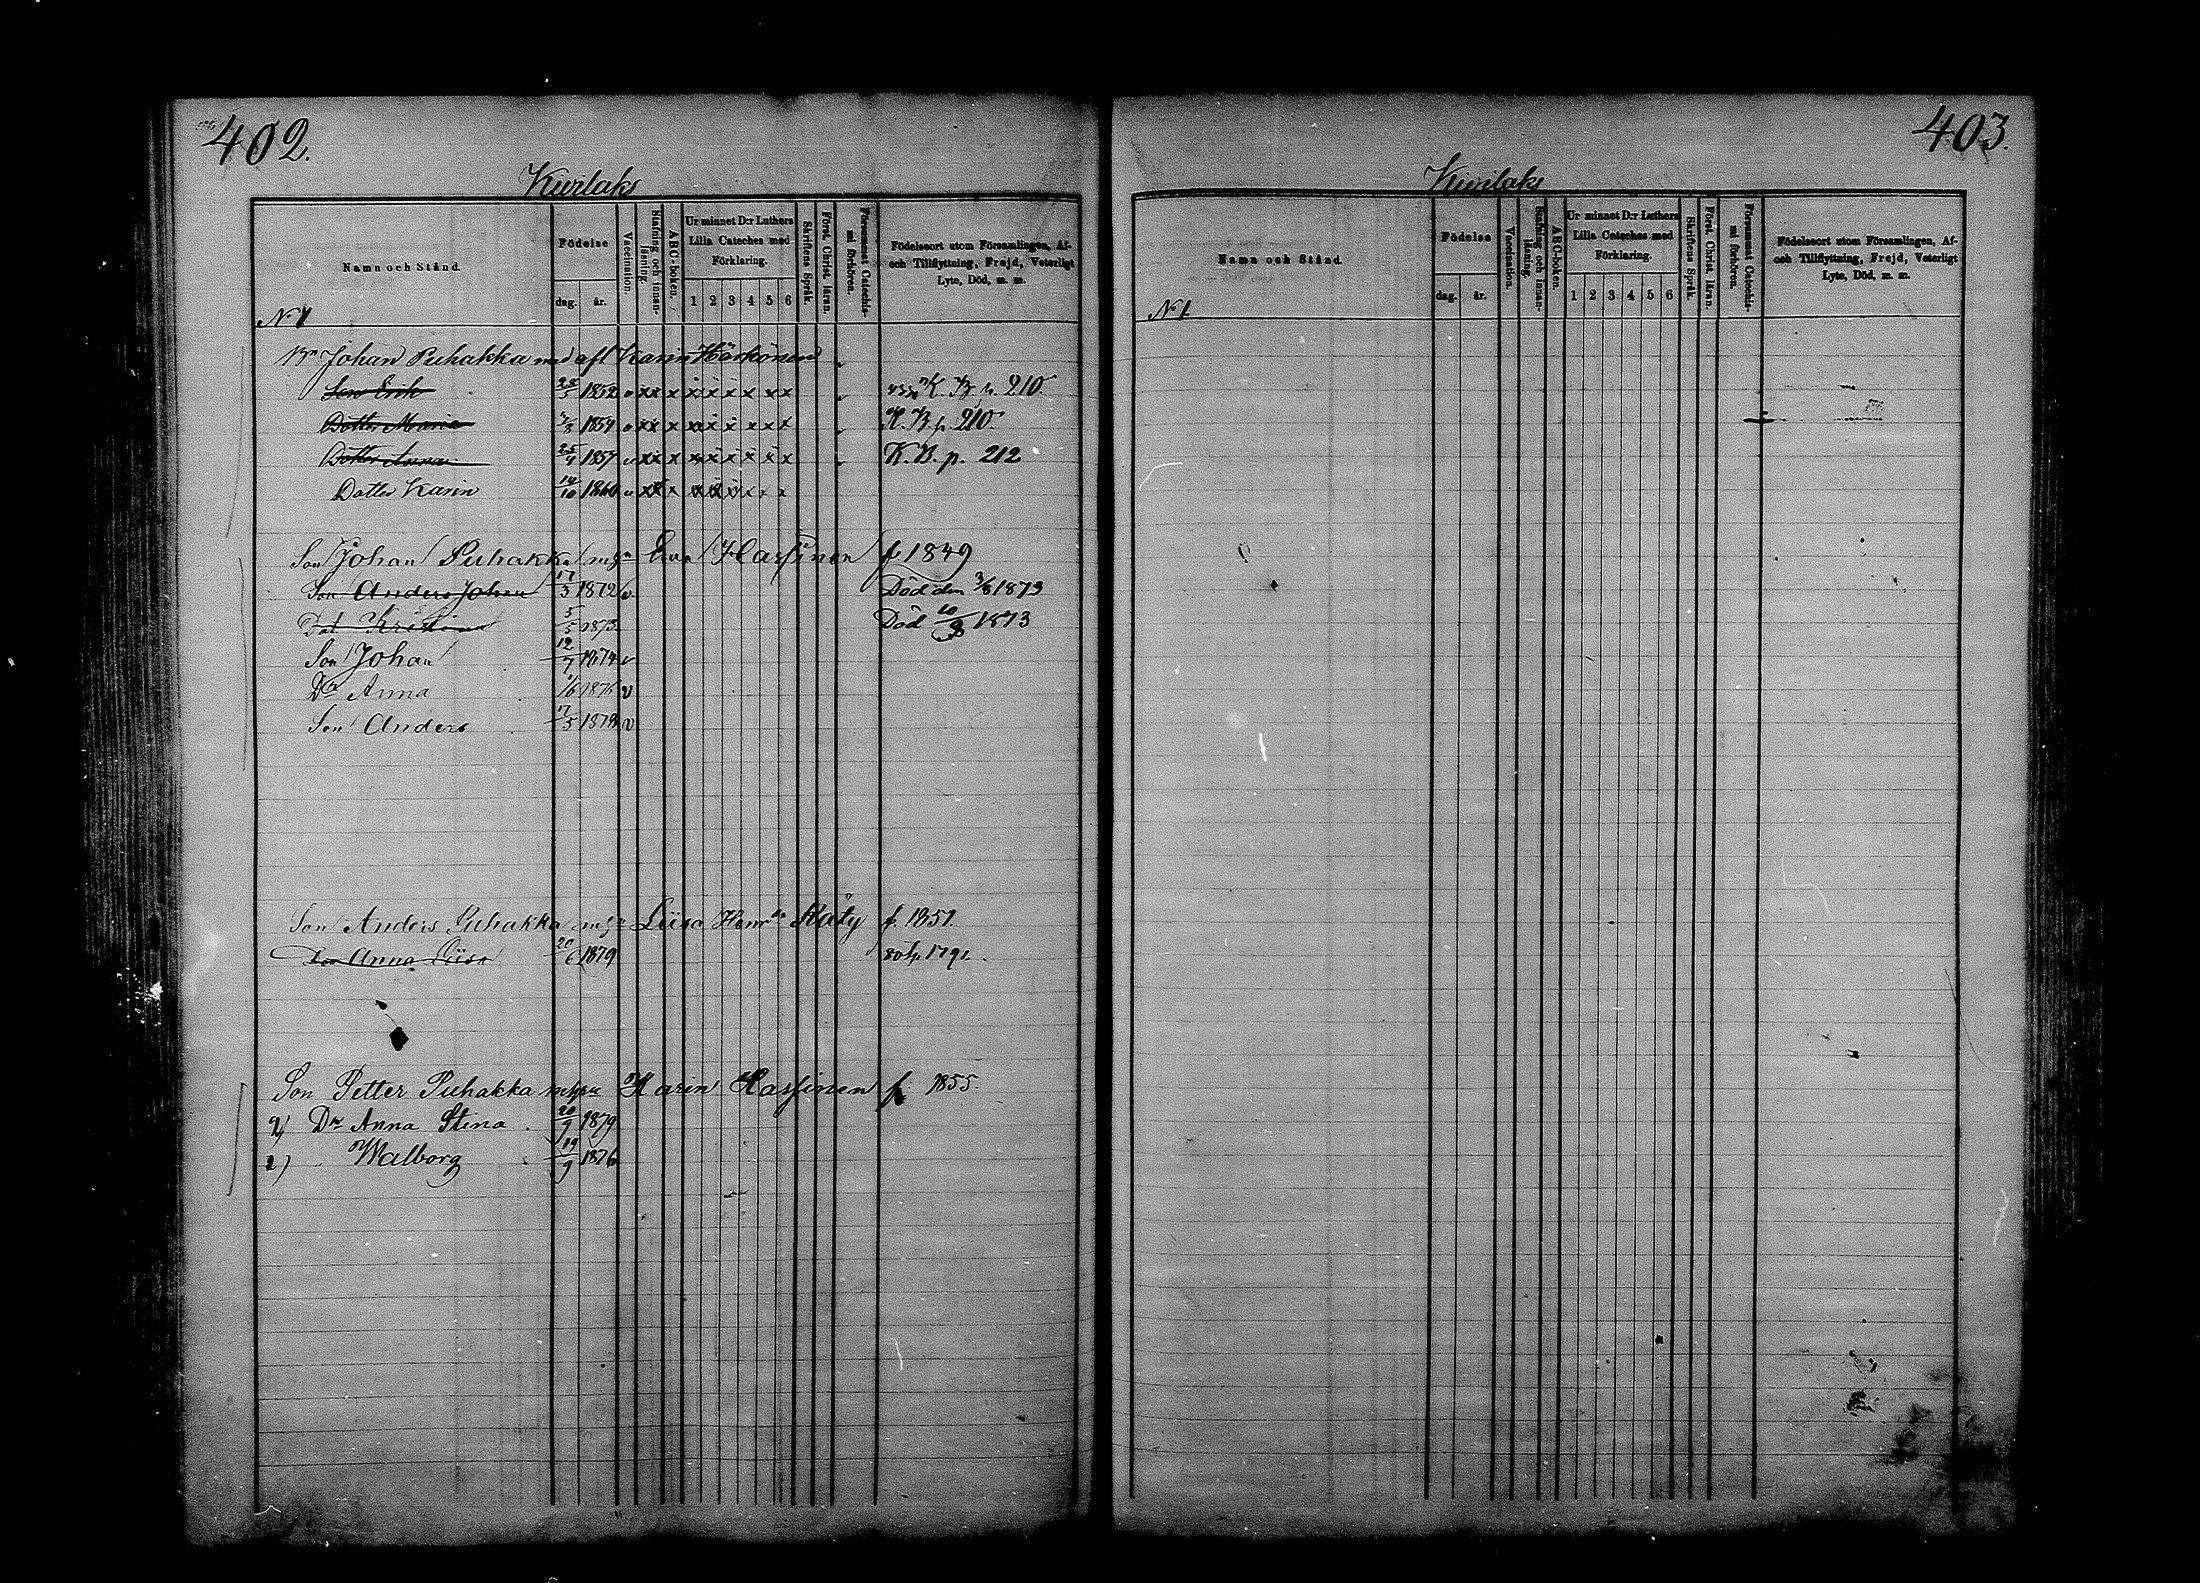 402.
Kivilaks
Namn och Stånd.
Födelse
dag. år.
Vaccination.
Stafning och innan-läsning.
ABC-boken.
Ur minnet D:r Luthers Lilla Cateches med Förklaring.
1 2 3 4 5 6
Skriftens Språk.
Först. Christ. läran.
Försummat Catechis-mi förhören.
Födelseort utom Församlingen, Af- och Tillflyttning, Frejd, Veterligt Lyte, Död, m. m.
N. 1
Bn Johan Puhakka med afl Karin Härkönen
Son Erik 1852 K. B. p. 210.
Dotter Maria 1854 K. B. p. 210.
Dotter Anna 25/4 1857 K. B. p. 212
Dotter Karin 14/10 1860
Son Johan Puhakka Eva Hassinen f 1849
Son Anders Johan 17/3 1872 v Död den 3/8 1873
Dot. Kristina 5/5 1873 Död 10/8 1873
Son Johan 12/7 1874 v
Dr Anna 1/6 1876 v
Son Anders 17/5 1878 v
Son Anders Puhakka Liisa Räty f. 1851.
Anna Liisa 20/6 1879
Son Petter Puhakka Karin Hassinen f. 1855.
2) Dr Anna Stina 20/9 1879
1) Walborg 19/9 1876
403.
Kivilaks
Namn och Stånd.
Födelse
dag. år.
Vaccination.
Stafning och innan-läsning.
ABC-boken.
Ur minnet D:r Luthers Lilla Cateches med Förklaring.
1 2 3 4 5 6
Skriftens Språk.
Först. Christ. läran.
Försummat Catechis-mi förhören.
Födelseort utom Församlingen, Af- och Tillflyttning, Frejd, Veterligt Lyte, Död, m. m.
N. 1.